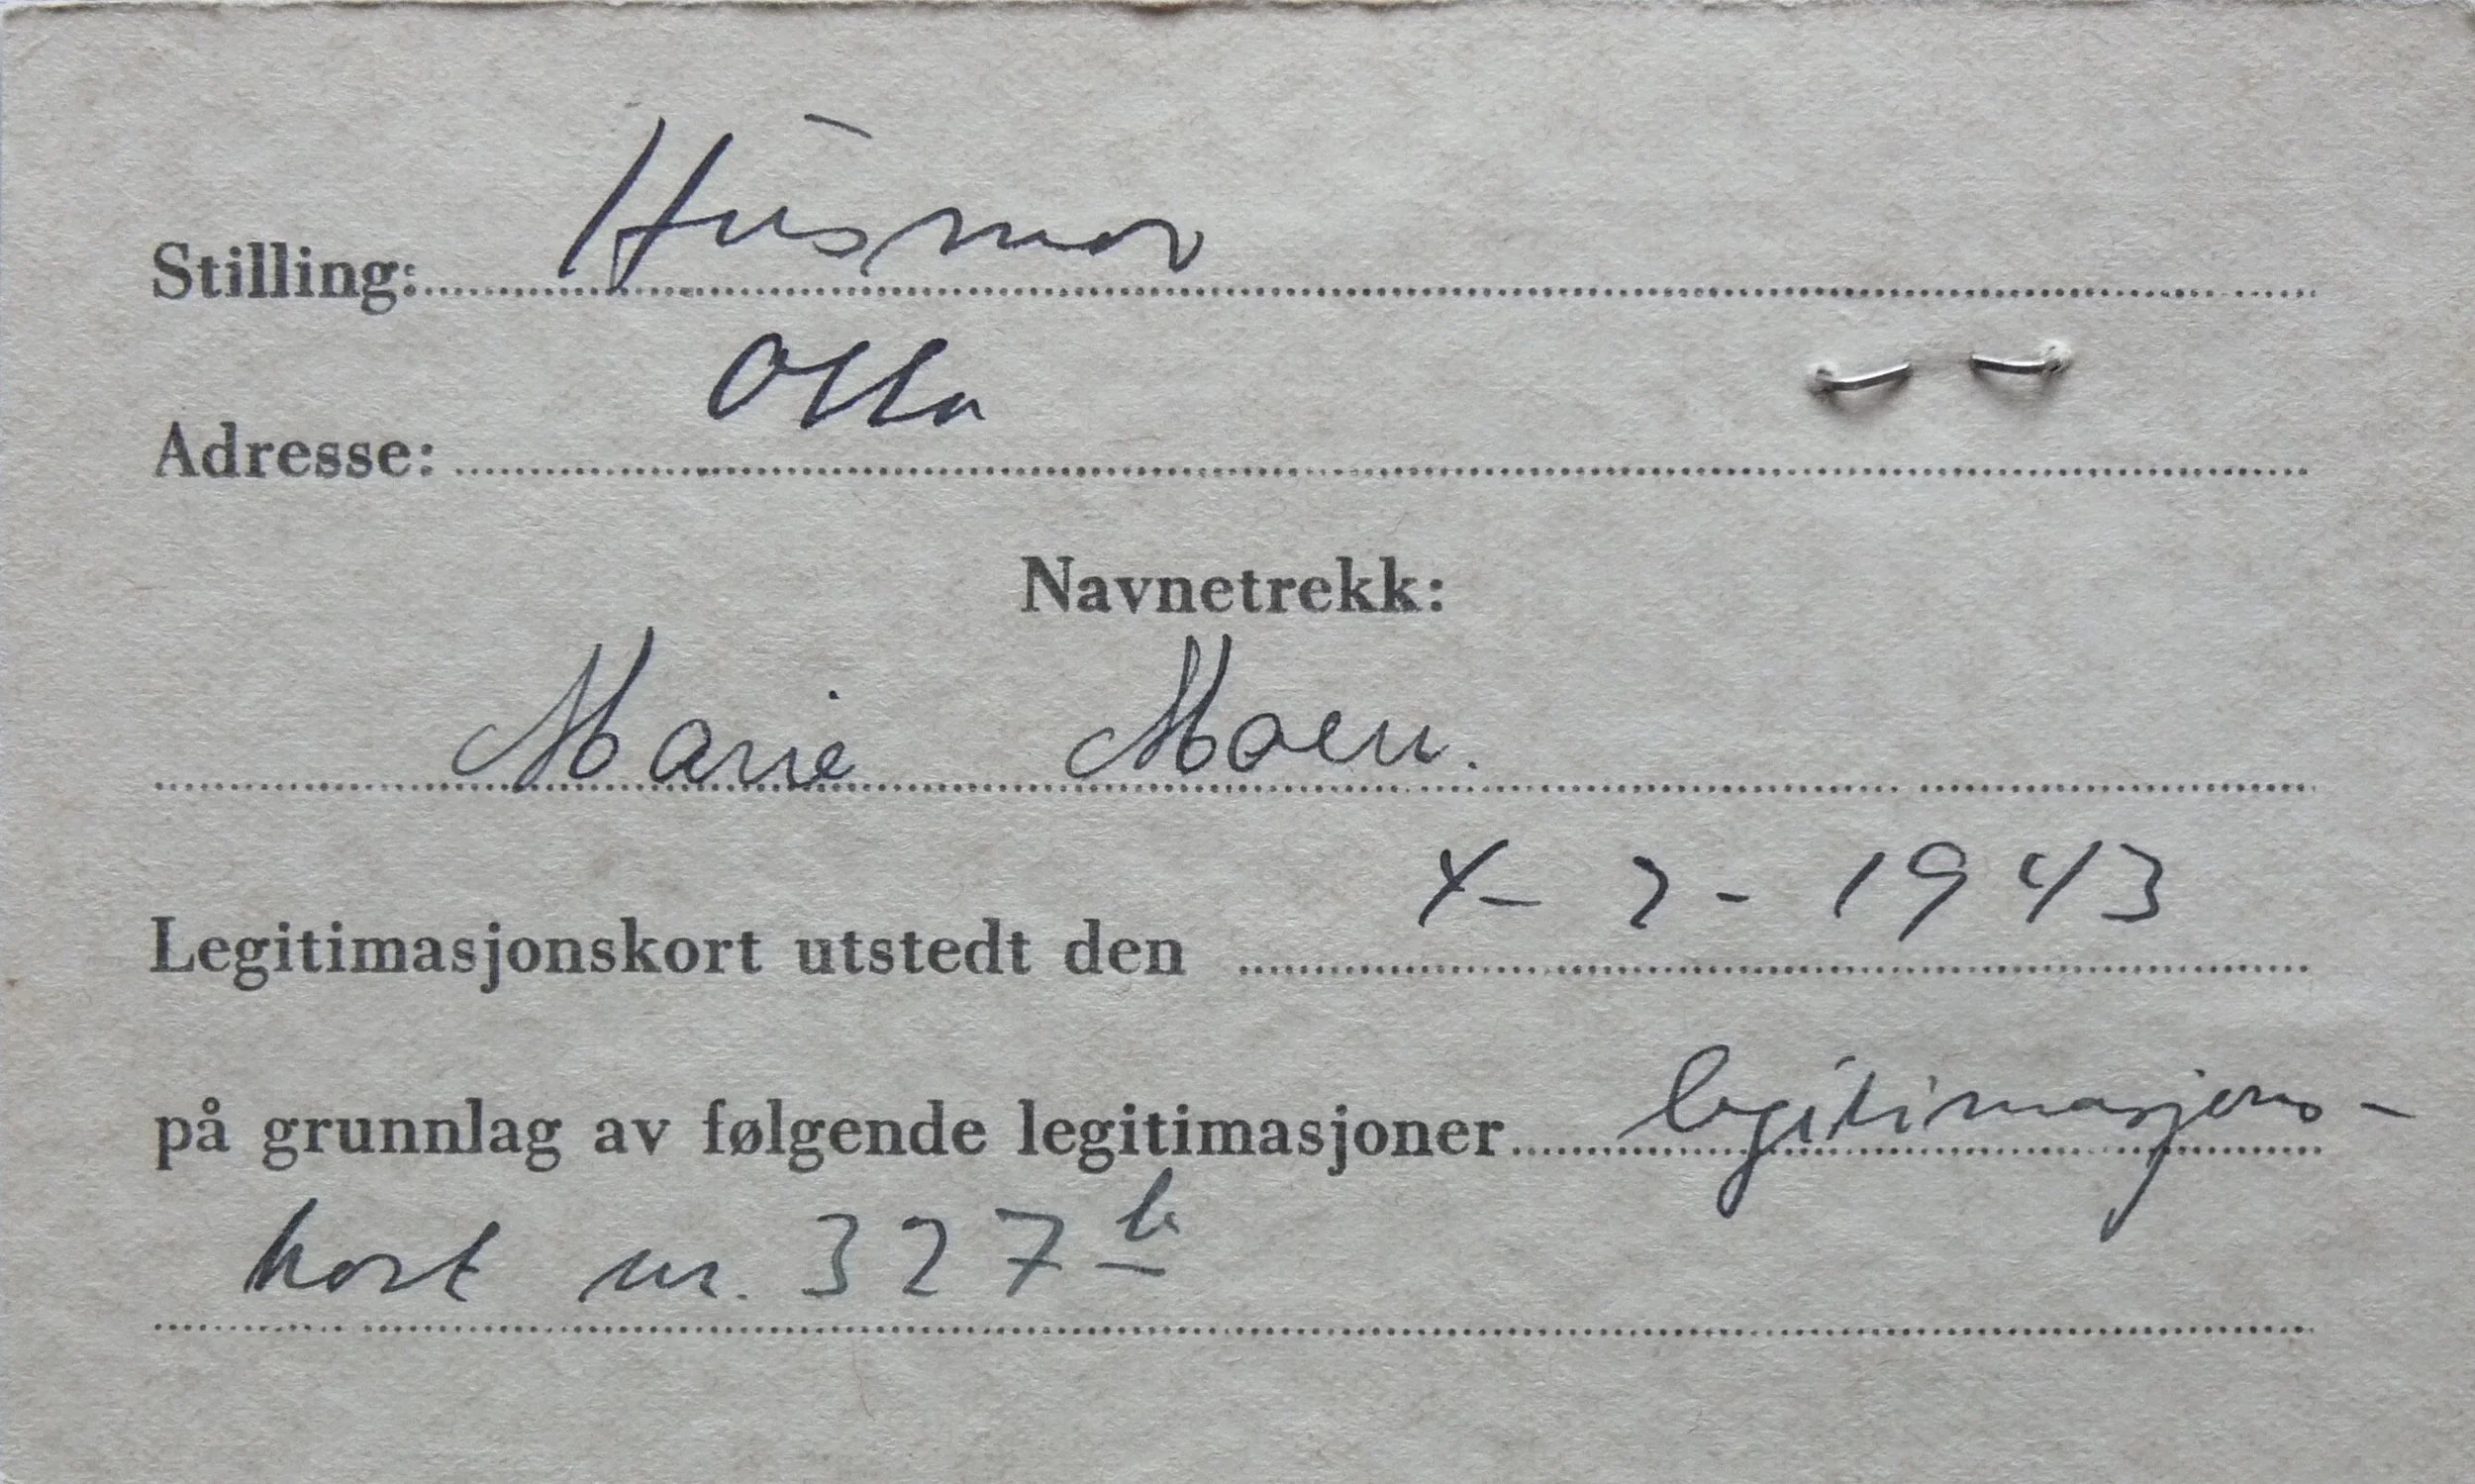 Stilling: Husmor
Adresse: Otta
Navnetrekk:
Marie Moen.
Legitimasjonskort utstedt den 4 - 2 - 1943
på grunnlag av følgende legitimasjoner legitimasjons-
kort nr. 327 b